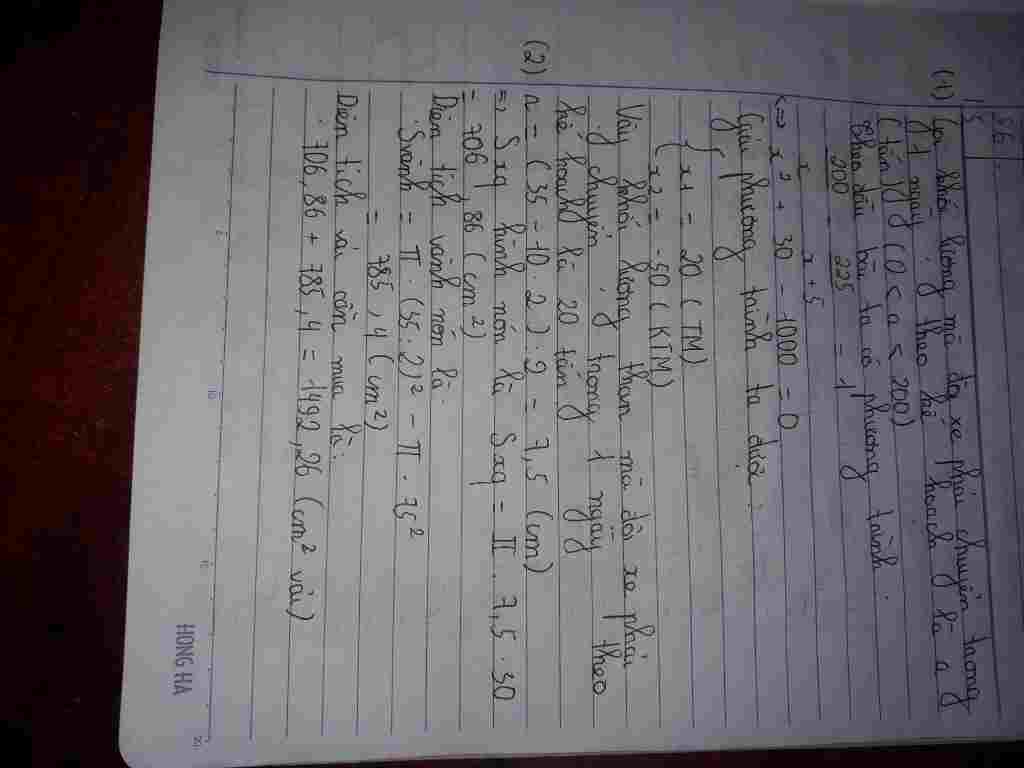 (1) Gọi khối lượng mà đội xe phải chuyên trong
1 ngày theo kế hoạch là a
(tấn) (0 < a < 200)
theo đầu bài ta có phương trình.
200/x - 225/x + 5 = 1
<=> x² + 30 - 1000 = 0
Giải phương trình ta được:
x1 = 20 (TM)
x2 = -50 (KTM)
Vậy khối lượng than mà đội xe phải
chuyên trong 1 ngày theo
kế hoạch là 20 tấn
(2) r = (35 - 10.2) : 2 = 7,5 (cm)
=> Sxq hình nón là Sxq = π . 7,5 . 30
= 706,86 (cm²)
Diện tích vành nón là.
Svành = π . (35:2)² - π . 7,5²
= 785,4 (cm²)
Diện tích vải cần mua là:
706,86 + 785,4 = 1492,26 (cm² vải)
HONG HA